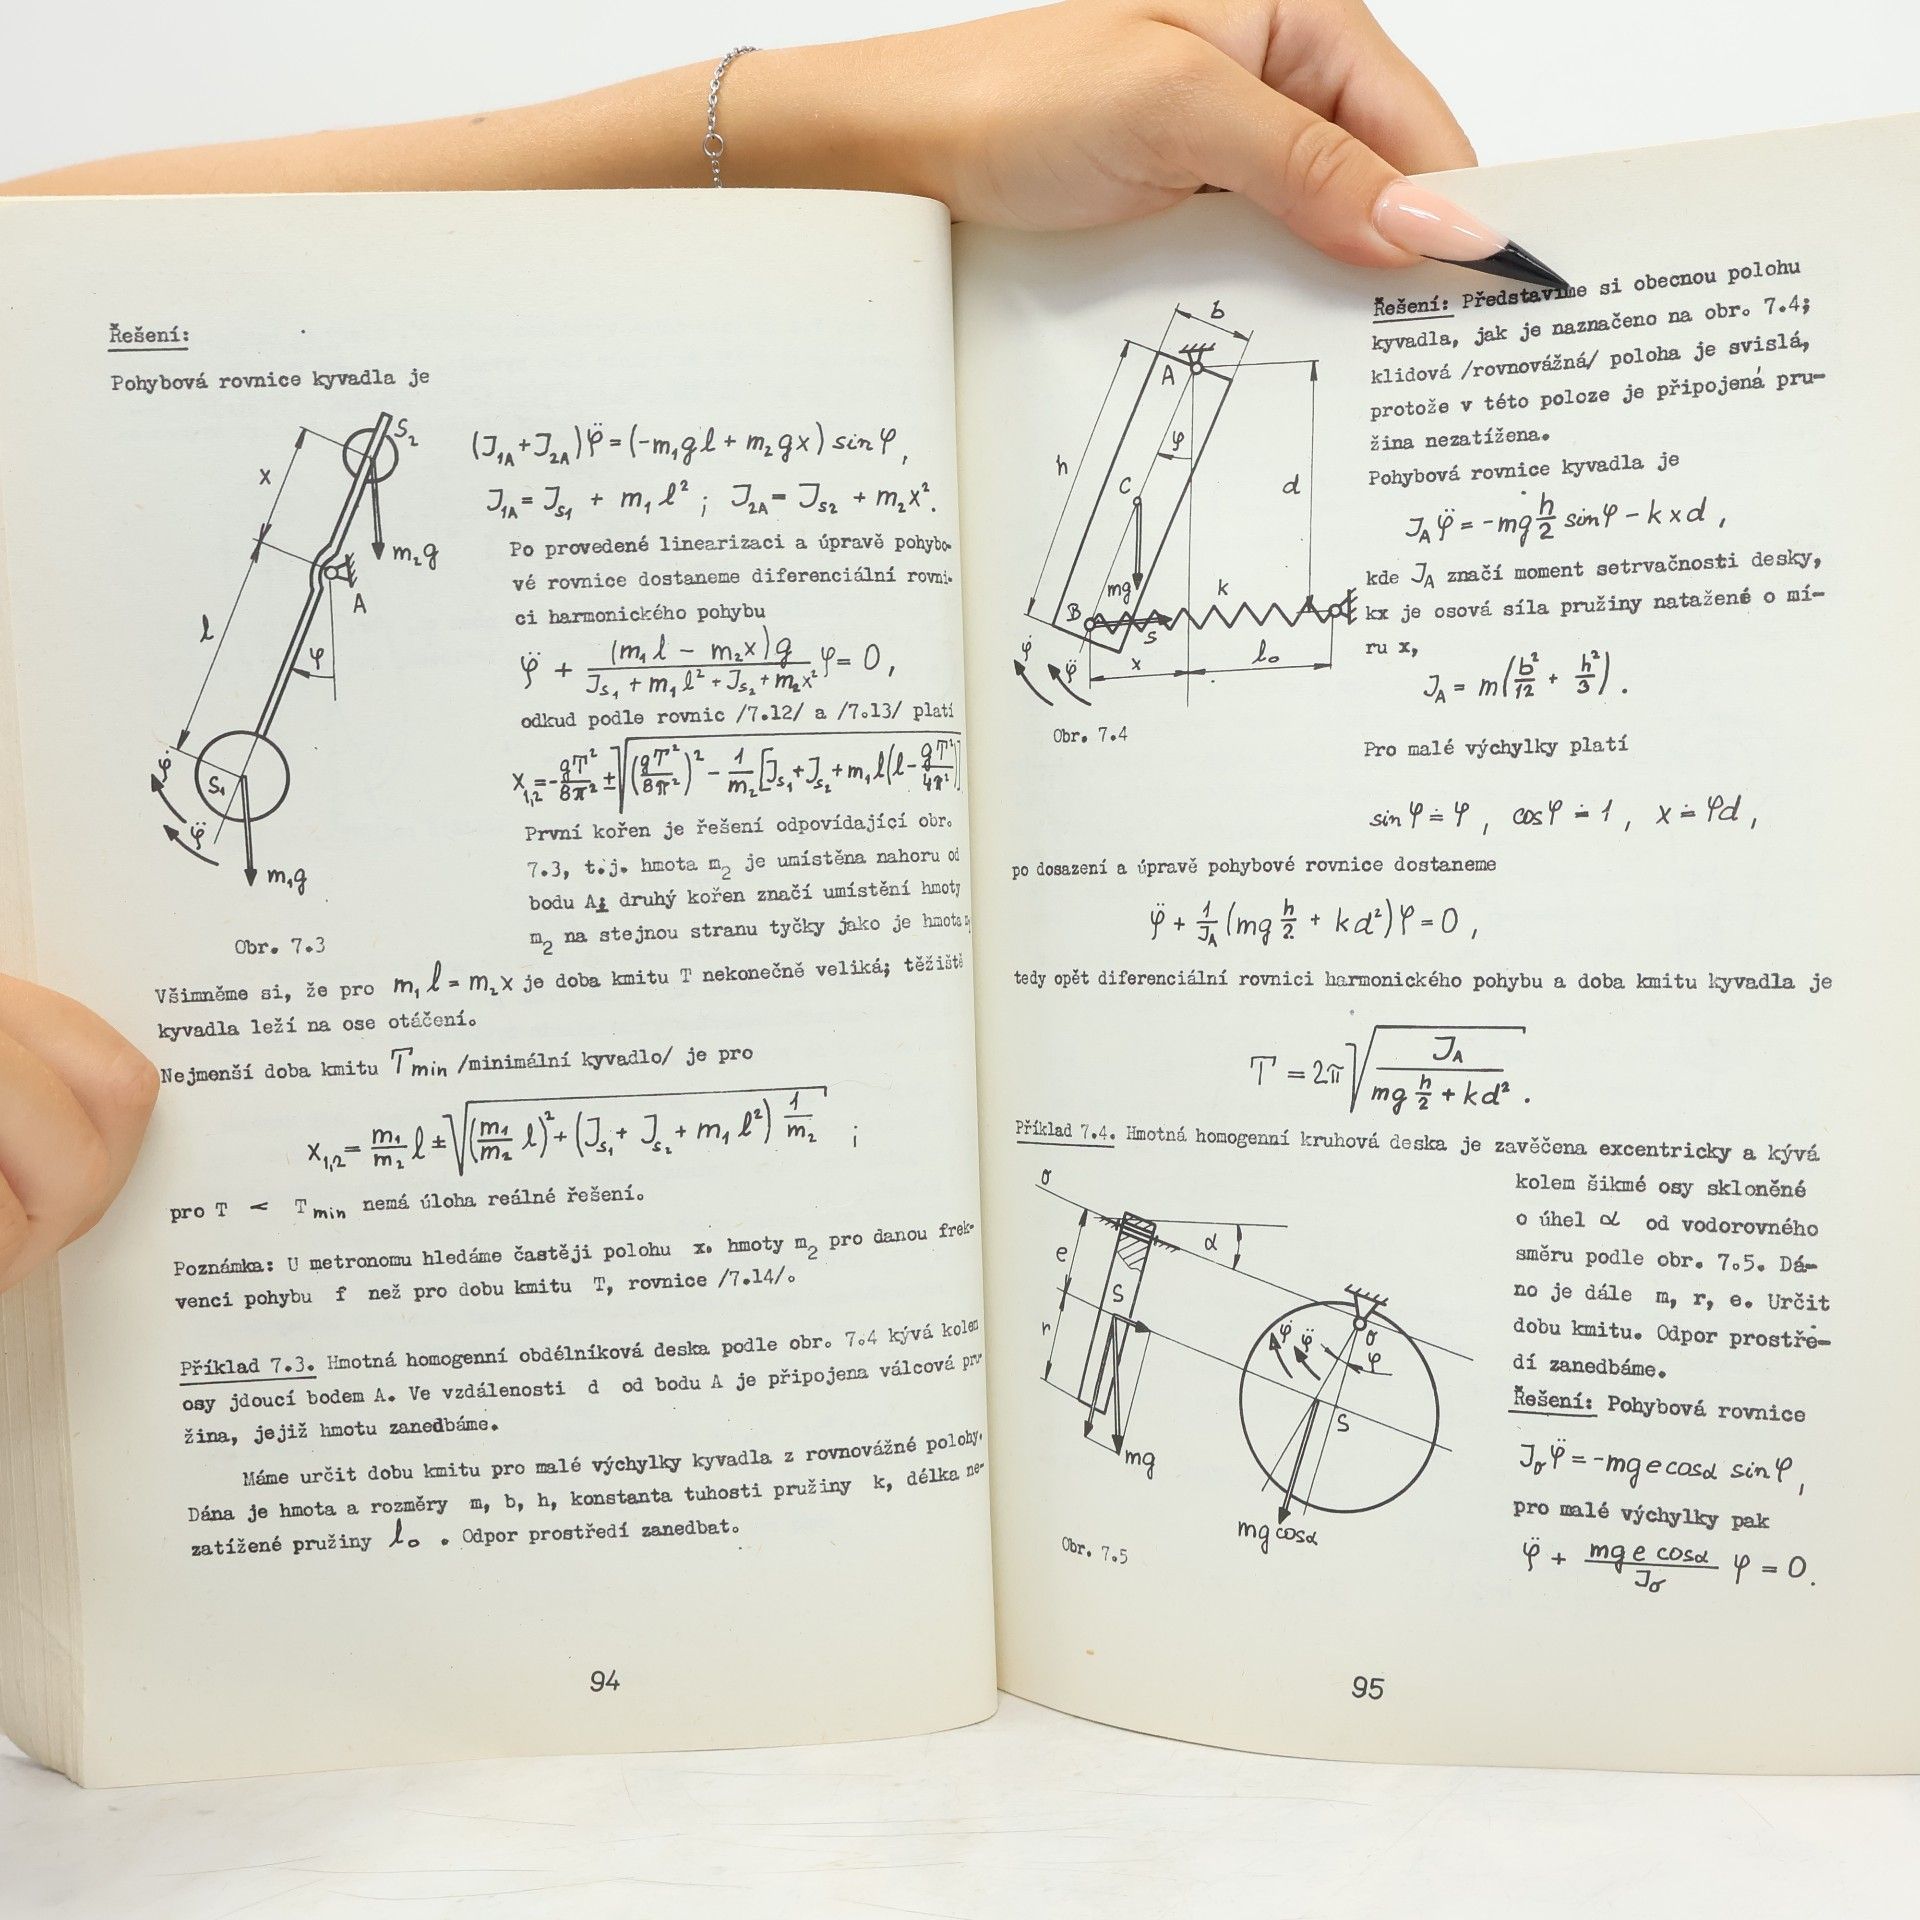 Řešení:
Pohybová rovnice kyvadla je
x
S₂
m₂g
A
l
φ
φ̇
φ̈
S₁
m₁g
Obr. 7.3
(J₁A + J₂A) φ̈ = (-m₁gl + m₂gx) sin φ,
J₁A = Js₁ + m₁l²; J₂A = Js₂ + m₂x².
Po provedené linearizaci a úpravě pohybo-
vé rovnice dostaneme diferenciální rovni-
ci harmonického pohybu
φ̈ + (m₁l - m₂x)g / (Js₁ + m₁l² + Js₂ + m₂x²) φ = 0,
odkud podle rovnic /7.12/ a /7.13/ platí
x₁,₂ = - gT²/8π² ± √((gT²/8π²)² - 1/m₂ [Js₁ + Js₂ + m₁l(l - gT²/4π²)]
První kořen je řešení odpovídající obr.
7.3, t.j. hmota m₂ je umístěna nahoru od
bodu A; druhý kořen značí umístění hmoty
m₂ na stejnou stranu tyčky jako je hmota
Všimněme si, že pro m₁l = m₂x je doba kmitu T nekonečně veliká; těžiště
kyvadla leží na ose otáčení.
Nejmenší doba kmitu Tmin /minimální kyvadlo/ je pro
x₁,₂ = m₁/m₂ l ± √((m₁/m₂ l)² + (Js₁ + Js₂ + m₁l²) 1/m₂) ;
pro T < Tmin nemá úloha reálné řešení.
Poznámka: U metronomu hledáme častěji polohu x. hmoty m₂ pro danou frek-
venci pohybu f než pro dobu kmitu T, rovnice /7.14/.
Příklad 7.3. Hmotná homogenní obdélníková deska podle obr. 7.4 kývá kolem
osy jdoucí bodem A. Ve vzdálenosti d od bodu A je připojena válcová pru-
žina, jejiž hmotu zanedbáme.
Máme určit dobu kmitu pro malé výchylky kyvadla z rovnovážné polohy.
Dána je hmota a rozměry m, b, h, konstanta tuhosti pružiny k, délka ne-
zatížené pružiny l₀ . Odpor prostředí zanedbat.
94
b
A
h
φ
C
d
mg
k
B
S
x
l₀
φ̇
φ̈
Obr. 7.4
Řešení: Představíme si obecnou polohu
kyvadla, jak je naznačeno na obr. 7.4;
klidová /rovnovážná/ poloha je svislá,
protože v této poloze je připojená pru-
žina nezatížena.
Pohybová rovnice kyvadla je
J_A φ̈ = -mg h/2 sin φ - kxd,
kde J_A značí moment setrvačnosti desky,
kx je osová síla pružiny natažené o mí-
ru x,
J_A = m(b²/12 + h²/3).
Pro malé výchylky platí
sin φ ≐ φ, cos φ ≐ 1, x ≐ φd,
po dosazení a úpravě pohybové rovnice dostaneme
φ̈ + 1/J_A (mg h/2 + kd²) φ = 0,
tedy opět diferenciální rovnici harmonického pohybu a doba kmitu kyvadla je
T = 2π √(J_A / (mg h/2 + kd²)).
Příklad 7.4. Hmotná homogenní kruhová deska je zavěčena excentricky a kývá
kolem šikmé osy skloněné
o úhel α od vodorovného
směru podle obr. 7.5. Dá-
no je dále m, r, e. Určit
dobu kmitu. Odpor prostře-
dí zanedbáme.
Řešení: Pohybová rovnice
J_σ φ̈ = -mge cosα sin φ,
pro malé výchylky pak
φ̈ + mge cosα / J_σ φ = 0.
σ
e
α
S
r
mg
φ̇
φ̈
σ
φ
S
mg cosα
Obr. 7.5
95